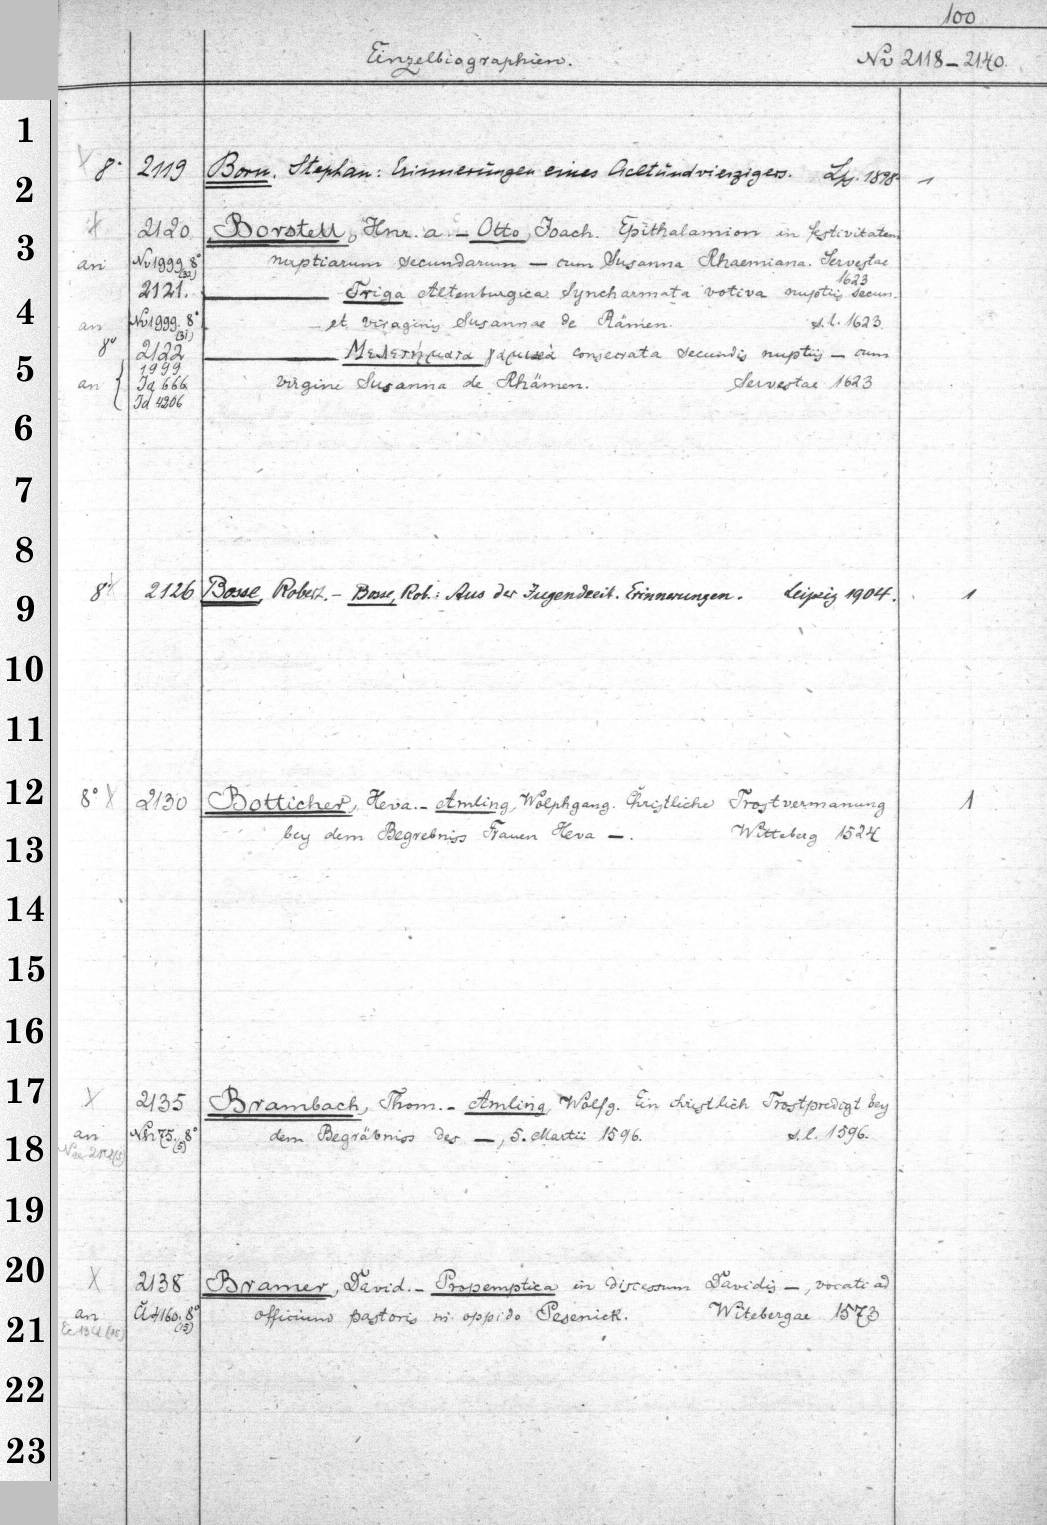 100
Einzelbiographien. Nv 2118-2140.
1
8° 2119 Born, Stephan: Erinnerungen eines Achtundvierzigers. Lpz. 1898. 1
2
2120 Borstell, Hnr. a - Otto, Joach. Epithalamion in festivitatem
3
an Nv 1999. 8° (32) nuptiarum secundarum — cum Susanna Rhaemiana. Servestae 1623
2121. Triga Altenburgica Syncharmata votiva nuptiis secun.
4
an Nv 1999. 8° (31) et viraginis Susannae de Rämen. s. l. 1623
8° 2122 Μελετήματα γαμικὰ consecrata secundis nuptiis — cum
5
an 1999 Id 666 Id 4206 virgine Susanna de Rhämen. Servestae 1623
6
7
8
8° 2126 Bosse, Robert. - Bosse, Rob.: Aus der Jugendzeit. Erinnerungen. Leipzig 1904. 1
9
10
11
12
8° X 2130 Botticher, Heva. - Amling, Wolphgang. Christliche Trostvermanung 1
bey dem Begrebniss Frauen Heva —. Witteberg 1524
13
14
15
16
17
X 2135 Brambach, Thom. - Amling, Wolfg. Ein christlich Trostpredigt bey
an 75. 8° (5) dem Begräbniss des —, 5. Martii 1596. s. l. 1596.
18
19
20
X 2138 Bramer, David. - Propemptica in discessum Davidis —, vocati ad
an 4160. 8° (13) officium pastoris in oppido Pesenick. Witebergae 1573
21
22
23